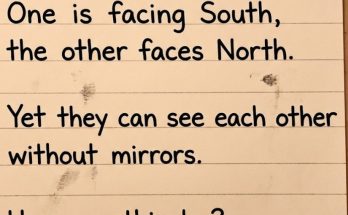 One is facing South,
the other faces North.
Yet they can see each other
without mirrors.